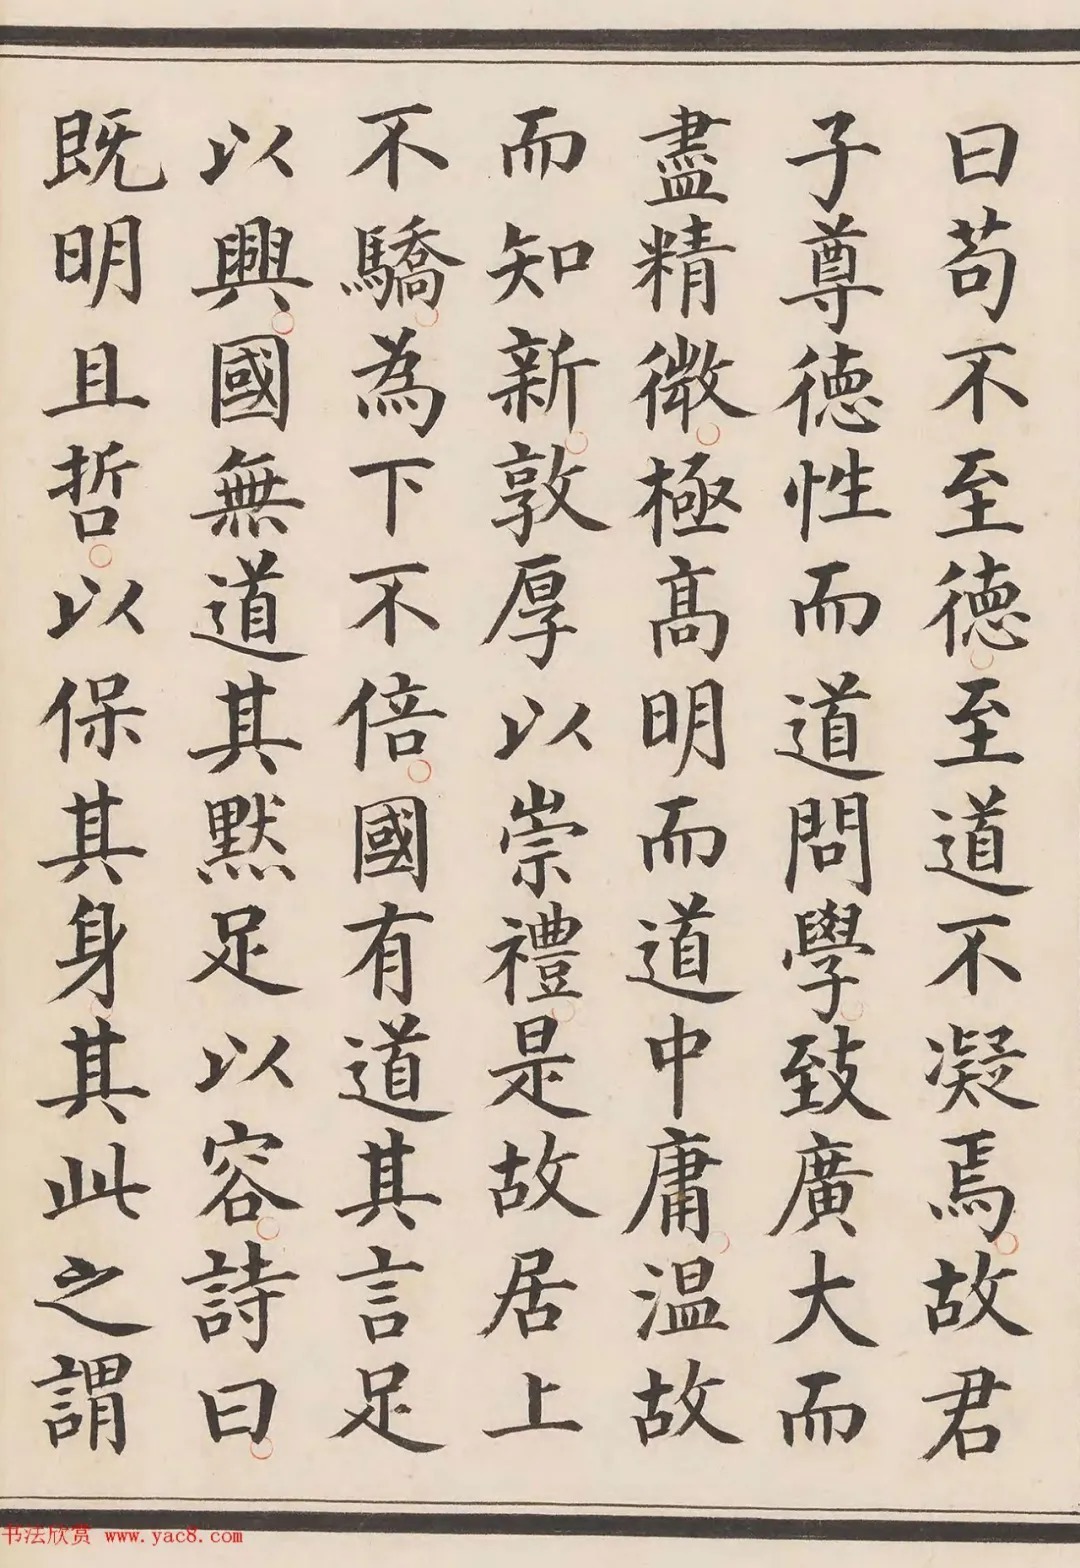 曰苟不至德至道不凝焉故君
子尊德性而道問學致廣大而
盡精微極高明而道中庸温故
而知新敦厚以崇禮是故居上
不驕為下不倍國有道其言足
以興國無道其默足以容詩曰
既明且哲以保其身其此之謂
书法欣赏 www.yac8.com